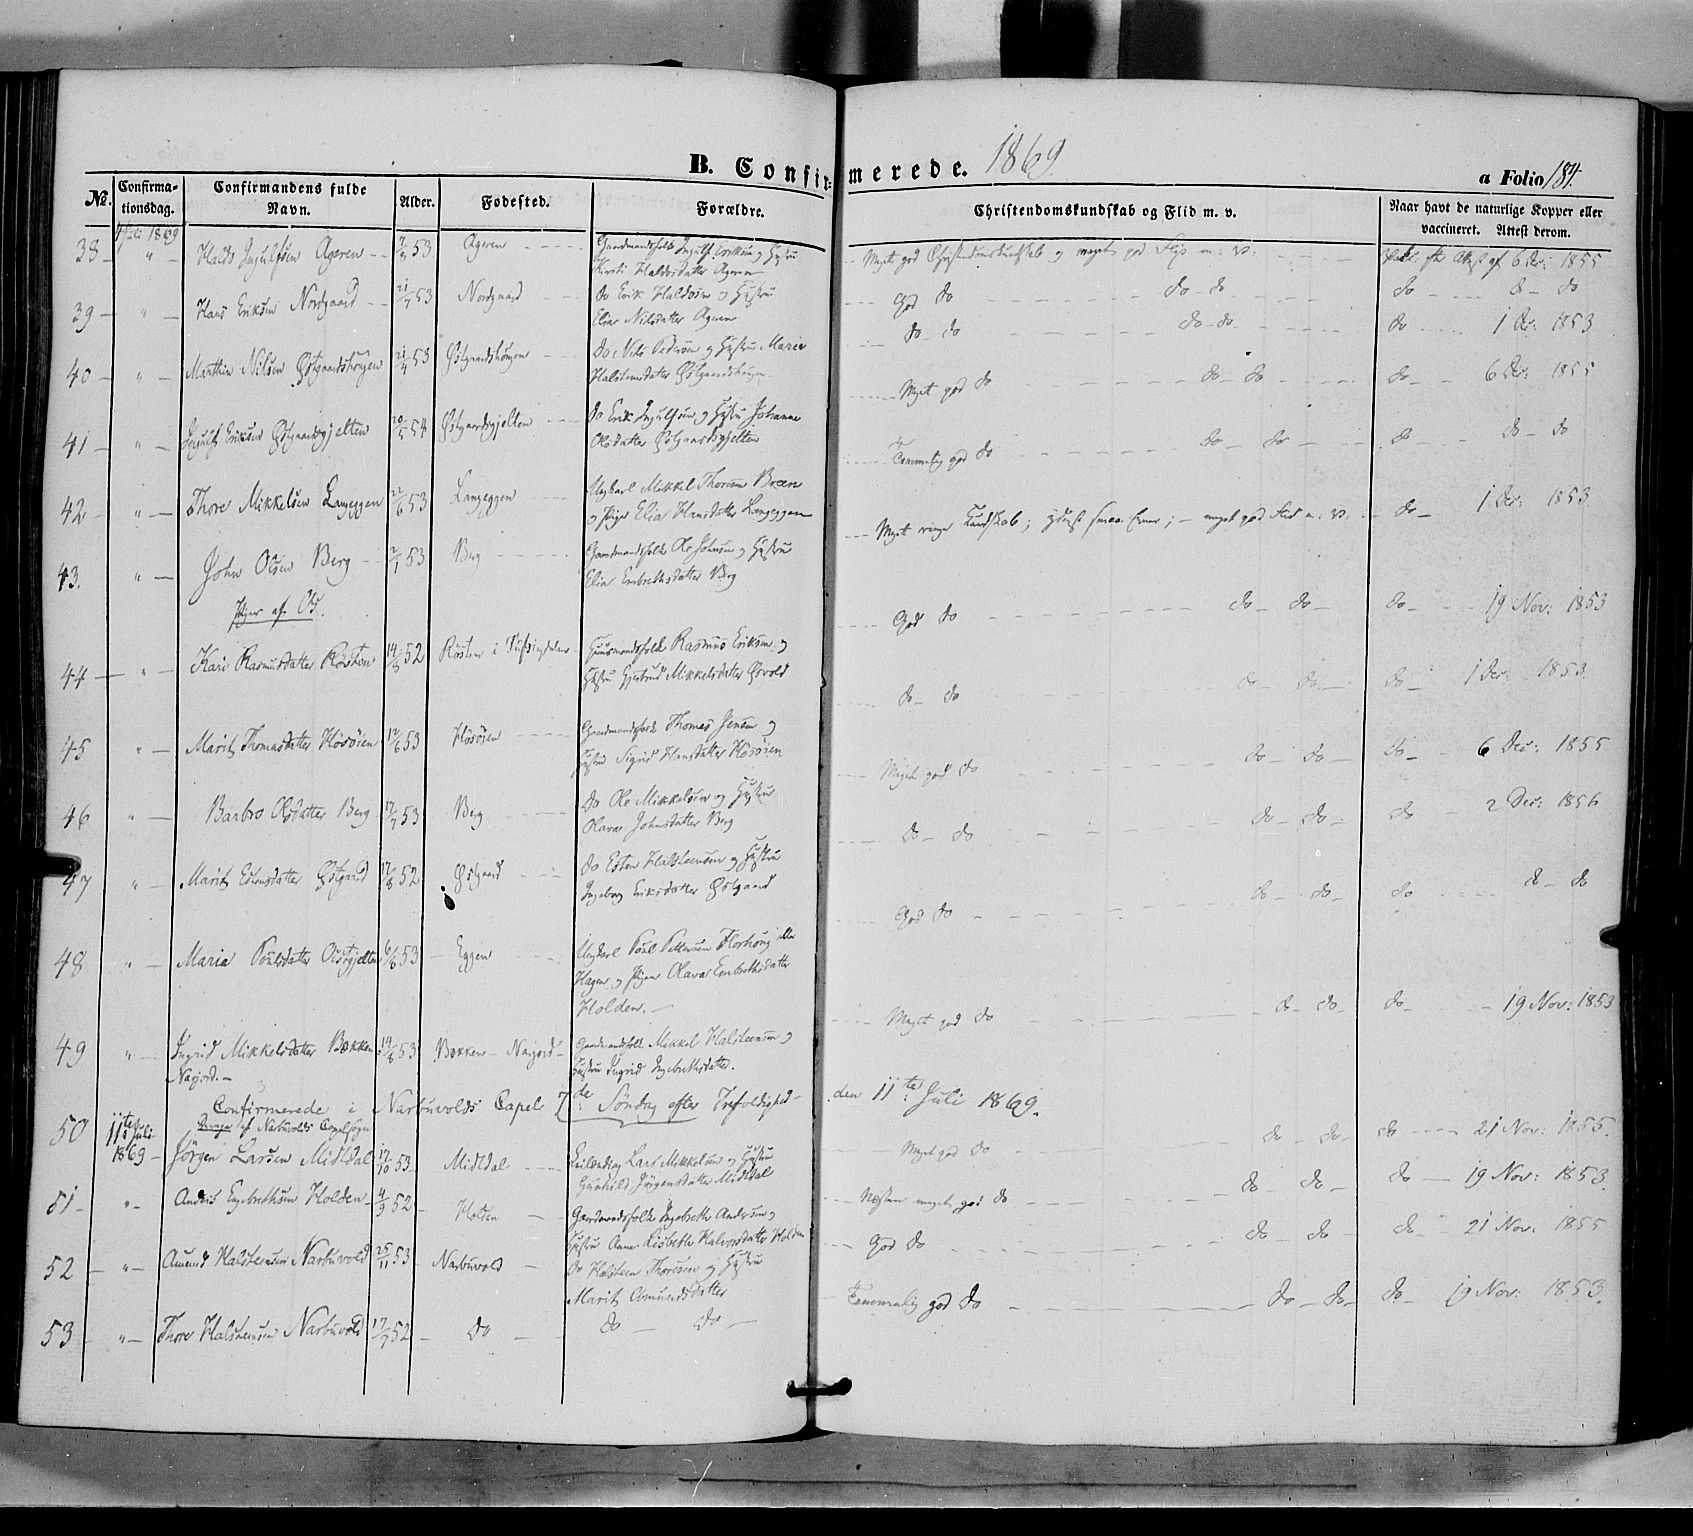 B. Confirmerede. 1869
a Folio 184.
№. Confirmationsdag. Confirmandens fulde Navn. Alder. Fødested. Forældre. Christendomskundskab og Flid m. v. Naar havt de naturlige Kopper eller vaccineret. Attest derom.
4 Juli 1869
38 — " — Haldo Ingulfsen Ageren — 53 Ageren Gaardmandsfolk Ingulf Eriksen og Hustru Meget god Christendomskundskab og meget god Flid m: v: 6 Dec: 1855
Kirsti Haldosdatter Ageren
39 — " — Hans Eriksen Nordgaard 53 Nordgaard do Erik Haldosen og Hustru God do do — do do do — do
Eli Nilsdatter Ageren
40 — " — Marthin Nilsen Østgaardshougen 21/4 53 Østgaardshougen do Nils Pedersen og Hustru Marie do do do — do do 1 Dec: 1853
Halstensdatter Østgaardshougen
41 — " — Ingulf Eriksen Østgaardsgjelten 20/5 54 Østgaardsgjelten do Erik Ingulfsen og Hustru Johanne Meget god do do — do do 6 Dec: 1855
Olsdatter Østgaardsgjelten
42 — " — Thore Mikkelsen Langeggen 22/6 53 Langeggen Ungkarl Mikkel Thoresen Bræn Temmelig god do do — do do do — do
og Pige Eli Hansdatter Langeggen
43. " — John Olsen Berg 2/1 53 Berg Gaardmandsfolk Ole Johnsen og Hustru Meget ringe Kundskab; yderst smaa Evner; — meget god Flid m: v: do 1 Dec: 1853
Eli Embrethsdatter Berg
Piger af Os.
44 — " — Kari Rasmusdatter Røsten 14/8 52 Røsten i Tufsingdalen Huusmandsfolk Rasmus Eriksen og God do do — do do 19 Nov: 1853
Hustru Gjertrud Mikkelsdatter Øvold
45 " — Marit Thomasdatter Høsøien 12/6 53 Høsøien Gaardmandsfolk Thomas Jensen og do do do — do do 1 Dec: 1853
Hustru Sigrid Hansdatter Høsøien
46 " — Barbro Olsdatter Berg 17/7 53 Berg do Ole Mikkelsen og Hustru Meget god do do — do do 6 Dec: 1855
Olava Johnsdatter Berg
47 " — Marit Estensdatter Østgaard 17/8 52 Østgaard do Esten Halsteensen og Hustru do — do do — do do 2 Dec: 1856
Ingeborg Eriksdatter Østgaard
48 " — Maria Poulsdatter Østgjelten 6/6 53 — Eggen Ungkarl Poul Pettersen Florhoug eller God do do — do do do — do
Hagen og Pigen Olava Embrethsdatter
Holden. —
49 " — Ingrid Mikkelsdatter Bækken 14/8 53 Bækken — Narjord Gaardmandsfolk Mikkel Halsteensen og Meget god do do — do do 19 Nov: 1853
Narjord. — Hustru Ingrid Ingebrethsdatter.
Confirmerede i Narbuvolds Capel 7de Søndag efter Trefoldighed — den 11te Juli 1869.
Drenge af Narbuvolds Capelsogn
50 11te Juli 1869 — Jørgen Larsen Midtdal 17/10 53 — Midtdal Lars Mikkelsen og Hustru Meget god do do — do — do 21 Nov: 1855.
Gunhild Jørgensdatter Midtdal
51 — " — Anders Engebrethsen Holden 4/9 52 — Holten Gaardmandsfolk Ingebreth Andersen og Næsten meget god do do — do — do 19 Nov: 1853.
Hustru Anne Lisbeth Halvorsdatter Holden
52 — " — Amund Halsteensen Narbuvold 25/11 53 Narbuvold do Halsteen Thoresen og Hustru God do do — do — do 21 Nov: 1855
Marit Amundsdatter
53 — " — Thore Halsteensen Narbuvold 17/7 52 — do do — do — Temmelig god do do — do — do 19 Nov: 1853.